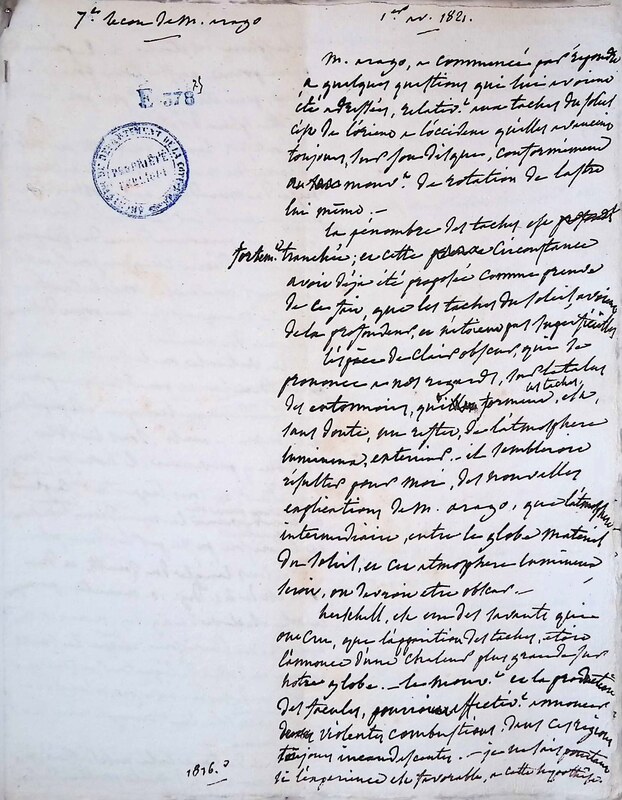 7.e lecon de M. arago
1.er av. 1821.
E 378 75
ARCHIVES DU DEPARTEMENT DE LA COTE D'OR
PROPRIÉTÉ
m. arago, a commencé par répondre
a quelques questions qui lui avoient
été adressées, relativ.t aux taches du soleil
c'est de l'orient a l'occident qu'elles avancent
toujours, sur son disque, conformement
au mouv.t de rotation de l'astre
lui même ;-
la pénombre des taches est
fortem.t tranchée ; et cette circonstance
avoit déja été proposée comme preuve
de ce fait, que les taches du soleil, avoient
de la profondeur, et n'étoient pas superficielles
l'espèce de clair obscur, qui se
prononce a nos regards, sur le talus
des entonnoirs, que ces taches forment, est a,
sans doute, un reflet, de l'atmosphere
lumineux, exterieur. - il sembleroit
résulter pour moi, des nouvelles
explications de M. arago, que l'atmosphere
intermédiaire, entre le globe matériel
du soleil, et cet atmosphere lumineux
seroit, ou devroit etre obscur. -
herschell, est un des savants qui
ont cru, que l'apparition des taches, etoit
l'annonce d'une chaleur plus grande sur
notre globe. - le mouv.t et la production
des facules, effectiv.t annoncer
violentes combustions. dans ces régions
toujours incandescentes. - je ne sais pourtant
si l'expérience est favorable, a cette hypothèse.
1816.?